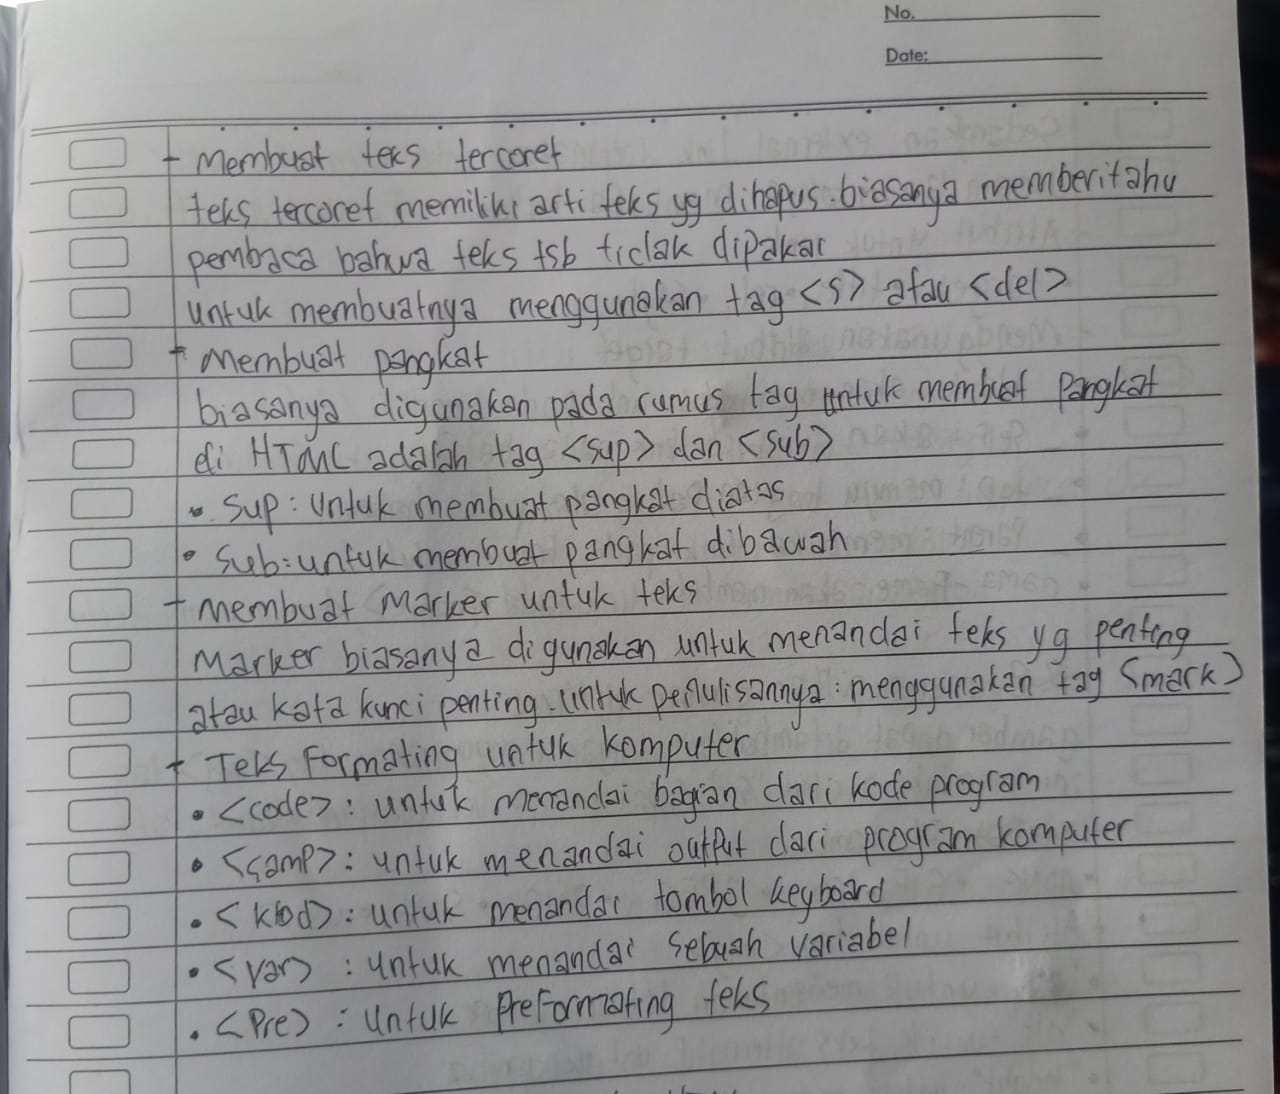 No.
Date:
+ Membuat teks tercoret
teks tercoret memiliki arti teks yg dihapus. biasanya memberitahu
pembaca bahwa teks tsb tidak dipakai
untuk membuatnya menggunakan tag <s> atau <del>
+ Membuat pangkat
biasanya digunakan pada rumus tag untuk membuat Pangkat
di HTML adalah tag <sup> dan <sub>
• Sup : Untuk membuat pangkat diatas
• Sub : untuk membuat pangkat dibawah
+ Membuat Marker untuk teks
Marker biasanya digunakan untuk menandai teks yg penting
atau kata kunci penting. Untuk penulisannya : menggunakan tag <mark>
+ Teks Formating untuk komputer
• <code> : untuk menandai bagian dari kode program
• <samp> : untuk menandai output dari program komputer
• <kbd> : untuk menandai tombol keyboard
• <var> : untuk menandai sebuah variabel
• <Pre> : Untuk PreFormating teks